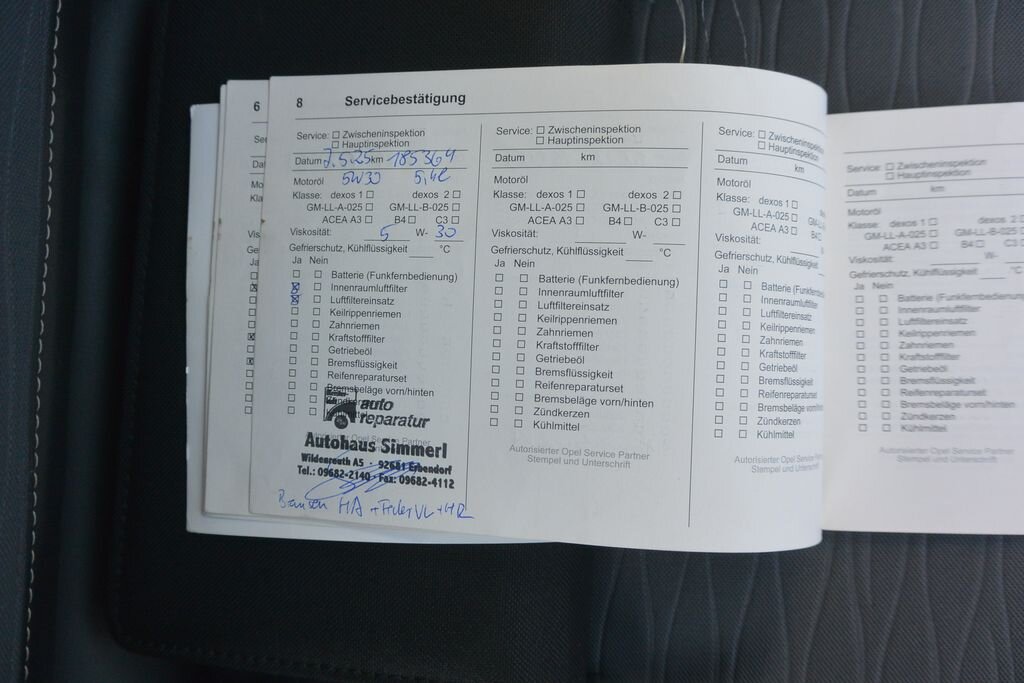 6
8 Servicebestätigung
Service: ☐ Zwischeninspektion
☐ Hauptinspektion
Datum 7.5.25 km 185364
Motoröl 5W30 5,4l
Klasse: dexos 1 ☐ dexos 2 ☐
GM-LL-A-025 ☐ GM-LL-B-025 ☐
ACEA A3 ☐ B4 ☐ C3 ☐
Viskosität: 5 W- 30
Gefrierschutz, Kühlflüssigkeit ____ °C
Ja Nein
☐ ☐ Batterie (Funkfernbedienung)
☒ ☐ Innenraumluftfilter
☒ ☐ Luftfiltereinsatz
☐ ☐ Keilrippenriemen
☐ ☐ Zahnriemen
☐ ☐ Kraftstofffilter
☐ ☐ Getriebeöl
☐ ☐ Bremsflüssigkeit
☐ ☐ Reifenreparaturset
☐ ☐ Bremsbeläge vorn/hinten
auto
reparatur
Autohaus Simmerl
Wildenreuth A5 · 92681 Erbendorf
Tel.: 09682-2140 · Fax: 09682-4112
HA
Service: ☐ Zwischeninspektion
☐ Hauptinspektion
Datum km
Motoröl
Klasse: dexos 1 ☐ dexos 2 ☐
GM-LL-A-025 ☐ GM-LL-B-025 ☐
ACEA A3 ☐ B4 ☐ C3 ☐
Viskosität: ____ W- ____
Gefrierschutz, Kühlflüssigkeit ____ °C
Ja Nein
☐ ☐ Batterie (Funkfernbedienung)
☐ ☐ Innenraumluftfilter
☐ ☐ Luftfiltereinsatz
☐ ☐ Keilrippenriemen
☐ ☐ Zahnriemen
☐ ☐ Kraftstofffilter
☐ ☐ Getriebeöl
☐ ☐ Bremsflüssigkeit
☐ ☐ Reifenreparaturset
☐ ☐ Bremsbeläge vorn/hinten
☐ ☐ Zündkerzen
☐ ☐ Kühlmittel
Autorisierter Opel Service Partner
Stempel und Unterschrift
Service: ☐ Zwischeninspektion
☐ Hauptinspektion
Datum km
Motoröl
Klasse: dexos 1 ☐
GM-LL-A-025 ☐
ACEA A3 ☐
Viskosität:
Gefrierschutz, Kühlflüssigkeit
Ja Nein
☐ ☐ Batterie (Funkfernbe
☐ ☐ Innenraumluftfilter
☐ ☐ Luftfiltereinsatz
☐ ☐ Keilrippenriemen
☐ ☐ Zahnriemen
☐ ☐ Kraftstofffilter
☐ ☐ Getriebeöl
☐ ☐ Bremsflüssigkeit
☐ ☐ Reifenreparaturset
☐ ☐ Bremsbeläge vorn/hin
☐ ☐ Zündkerzen
☐ ☐ Kühlmittel
Autorisierter Opel Service
Stempel und Unterschrift
Service: ☐ Zwischeninspektion
☐ Hauptinspektion
Datum km
Motoröl
Klasse: dexos 1 ☐ dexos 2 ☐
GM-LL-A-025 ☐ GM-LL-B-025
ACEA A3 ☐ B4 ☐ C3 ☐
Viskosität: ____ W-
Gefrierschutz, Kühlflüssigkeit ____ °C
Ja Nein
☐ ☐ Batterie (Funkfernbedienung
☐ ☐ Innenraumluftfilter
☐ ☐ Luftfiltereinsatz
☐ ☐ Keilrippenriemen
☐ ☐ Zahnriemen
☐ ☐ Kraftstofffilter
☐ ☐ Getriebeöl
☐ ☐ Bremsflüssigkeit
☐ ☐ Reifenreparaturset
☐ ☐ Bremsbeläge vorn/hinten
☐ ☐ Zündkerzen
☐ ☐ Kühlmittel
Autorisierter Opel Service Partner
Stempel und Unterschrift